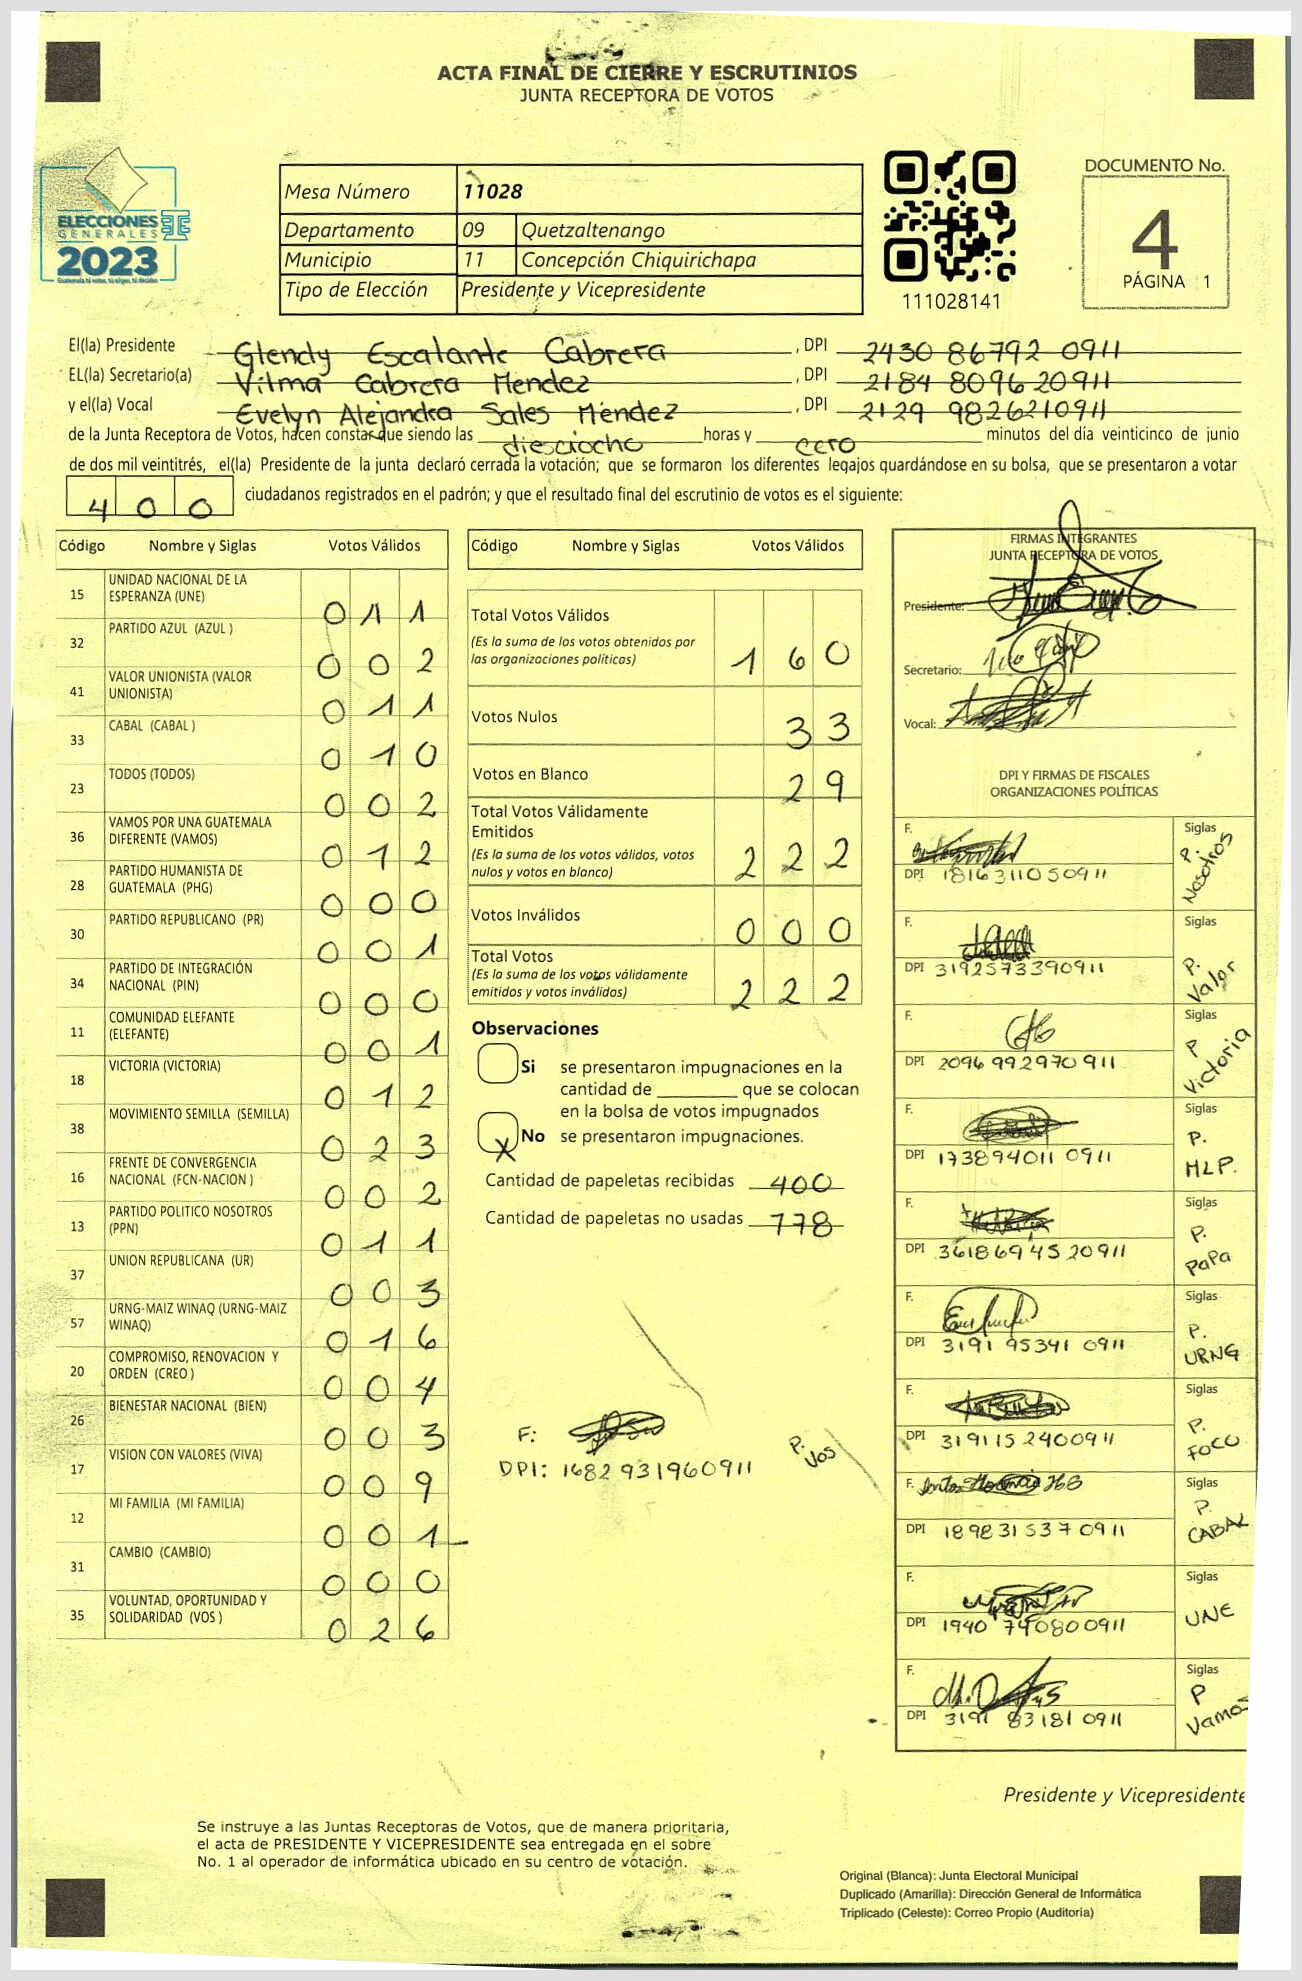 ACTA FINAL DE CIERRE Y ESCRUTINIOS
JUNTA RECEPTORA DE VOTOS
ELECCIONES
GENERALES
2023
Mesa Número 11028
Departamento 09 Quetzaltenango
Municipio 11 Concepción Chiquirichapa
Tipo de Elección Presidente y Vicepresidente
111028141
DOCUMENTO No.
4
PÁGINA 1
El(la) Presidente Glendy Escalante Cabrera , DPI 2430 86792 0911
EL(la) Secretario(a) Vilma Cabrera Mendez , DPI 2184 8096 20911
y el(la) Vocal Evelyn Alejandra Sales Méndez , DPI 2129 9826210911
de la Junta Receptora de Votos, hacen constar que siendo las diesciocho horas y cero minutos del día veinticinco de junio
de dos mil veintitrés, el(la) Presidente de la junta declaró cerrada la votación; que se formaron los diferentes legajos guardándose en su bolsa, que se presentaron a votar
400 ciudadanos registrados en el padrón; y que el resultado final del escrutinio de votos es el siguiente:
Código Nombre y Siglas Votos Válidos
15 UNIDAD NACIONAL DE LA ESPERANZA (UNE) 0 1 1
32 PARTIDO AZUL (AZUL ) 0 0 2
41 VALOR UNIONISTA (VALOR UNIONISTA) 0 1 1
33 CABAL (CABAL ) 0 1 0
23 TODOS (TODOS) 0 0 2
36 VAMOS POR UNA GUATEMALA DIFERENTE (VAMOS) 0 1 2
28 PARTIDO HUMANISTA DE GUATEMALA (PHG) 0 0 0
30 PARTIDO REPUBLICANO (PR) 0 0 1
34 PARTIDO DE INTEGRACIÓN NACIONAL (PIN) 0 0 0
11 COMUNIDAD ELEFANTE (ELEFANTE) 0 0 1
18 VICTORIA (VICTORIA) 0 1 2
38 MOVIMIENTO SEMILLA (SEMILLA) 0 2 3
16 FRENTE DE CONVERGENCIA NACIONAL (FCN-NACION ) 0 0 2
13 PARTIDO POLITICO NOSOTROS (PPN) 0 1 1
37 UNION REPUBLICANA (UR) 0 0 3
57 URNG-MAIZ WINAQ (URNG-MAIZ WINAQ) 0 1 6
20 COMPROMISO, RENOVACION Y ORDEN (CREO ) 0 0 4
26 BIENESTAR NACIONAL (BIEN) 0 0 3
17 VISION CON VALORES (VIVA) 0 0 9
12 MI FAMILIA (MI FAMILIA) 0 0 1
31 CAMBIO (CAMBIO) 0 0 0
35 VOLUNTAD, OPORTUNIDAD Y SOLIDARIDAD (VOS ) 0 2 6
Código Nombre y Siglas Votos Válidos
Total Votos Válidos 1 6 0
(Es la suma de los votos obtenidos por
las organizaciones políticas)
Votos Nulos 3 3
Votos en Blanco 2 9
Total Votos Válidamente
Emitidos
(Es la suma de los votos válidos, votos
nulos y votos en blanco) 2 2 2
Votos Inválidos 0 0 0
Total Votos
(Es la suma de los votos válidamente
emitidos y votos inválidos) 2 2 2
Observaciones
Si se presentaron impugnaciones en la
cantidad de ________ que se colocan
en la bolsa de votos impugnados
X No se presentaron impugnaciones.
Cantidad de papeletas recibidas 400
Cantidad de papeletas no usadas 778
F:
DPI: 1682 931960911
P. Vos
FIRMAS INTEGRANTES
JUNTA RECEPTORA DE VOTOS
Presidente:
Secretario:
Vocal:
DPI Y FIRMAS DE FISCALES
ORGANIZACIONES POLÍTICAS
F. Siglas P. Nosotros
DPI 1816311050911
F. Siglas P. Valor
DPI 3192573390911
F. Siglas P Victoria
DPI 2096 992970 911
F. Siglas P. MLP.
DPI 173894011 0911
F. Siglas P. PaPa
DPI 3618694520911
F. Siglas P. URNG
DPI 3191 95341 0911
F. Siglas P. FOCO
DPI 3191152400911
F. Siglas P. CABAL
DPI 1898315370911
F. Siglas UNE
DPI 1940 740800911
F. Siglas P Vamos
DPI 3191 83181 0911
Presidente y Vicepresidente
Se instruye a las Juntas Receptoras de Votos, que de manera prioritaria,
el acta de PRESIDENTE Y VICEPRESIDENTE sea entregada en el sobre
No. 1 al operador de informática ubicado en su centro de votación.
Original (Blanca): Junta Electoral Municipal
Duplicado (Amarilla): Dirección General de Informática
Triplicado (Celeste): Correo Propio (Auditoría)